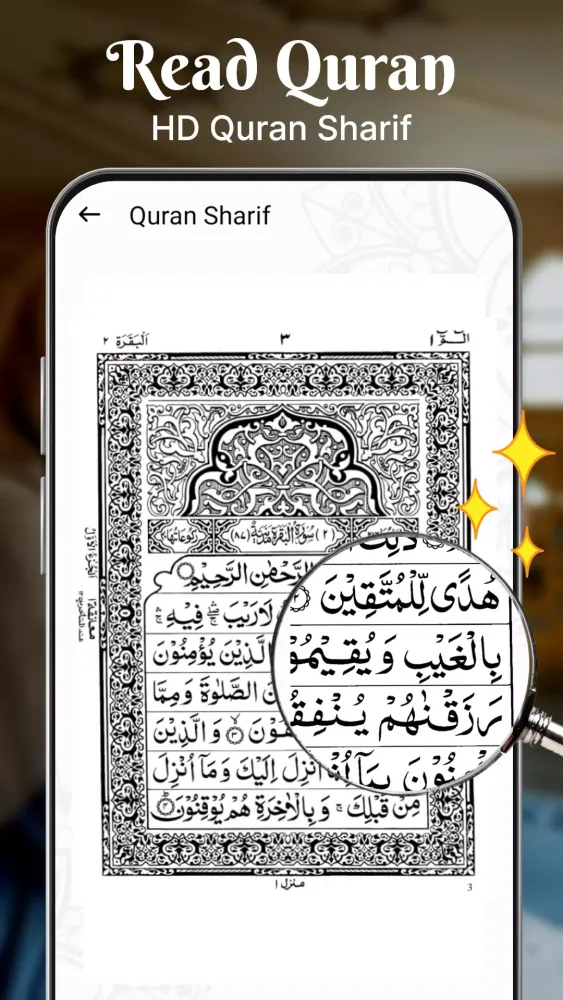 Read Quran
HD Quran Sharif
Quran Sharif
الٓمّٓ ١ ٣ اَلْبَقَرَة ٢
(٢) سُوْرَةُ الْبَقَرَةِ مَدَنِيَّةٌ (٨٧) رکوعاتها
الرَّحْمٰنِ الرَّحِيْمِ
لَارَيْبَ ۛ فِيْهِ ۛ
هُدًى لِّلْمُتَّقِيْنَ
الَّذِيْنَ يُؤْمِنُوْنَ
بِالْغَيْبِ وَيُقِيْمُو
الصَّلٰوةَ وَمِمَّا
رَزَقْنٰهُمْ يُنْفِقُ
وَالَّذِيْنَ
اُنْزِلَ اِلَيْكَ وَمَآ اُنْزِلَ
مِنْ قَبْلِكَ ۚ وَبِالْاٰخِرَةِ هُمْ يُوْقِنُوْنَ
منزل ١
3